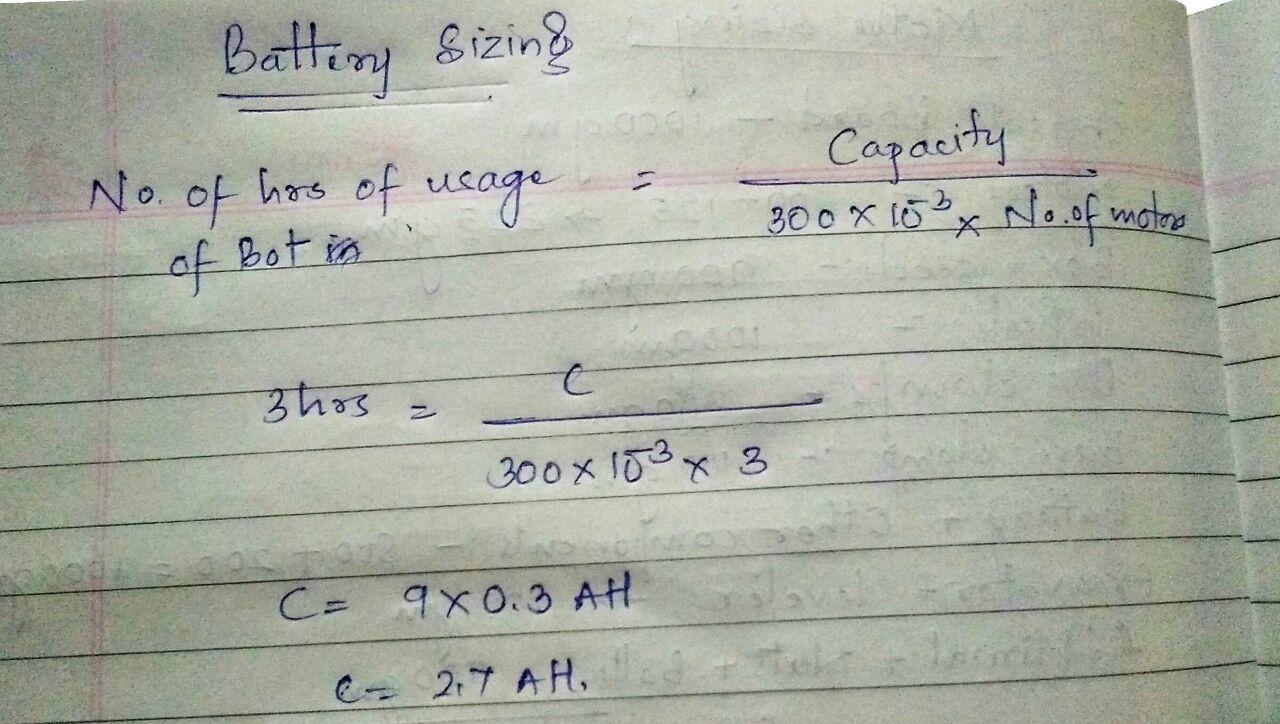 Battery Sizing
No. of hrs of usage = Capacity
of Bot in 300 x 10⁻³ x No. of motors
3hrs = C
300 x 10⁻³ x 3
C = 9 x 0.3 AH
C = 2.7 AH.